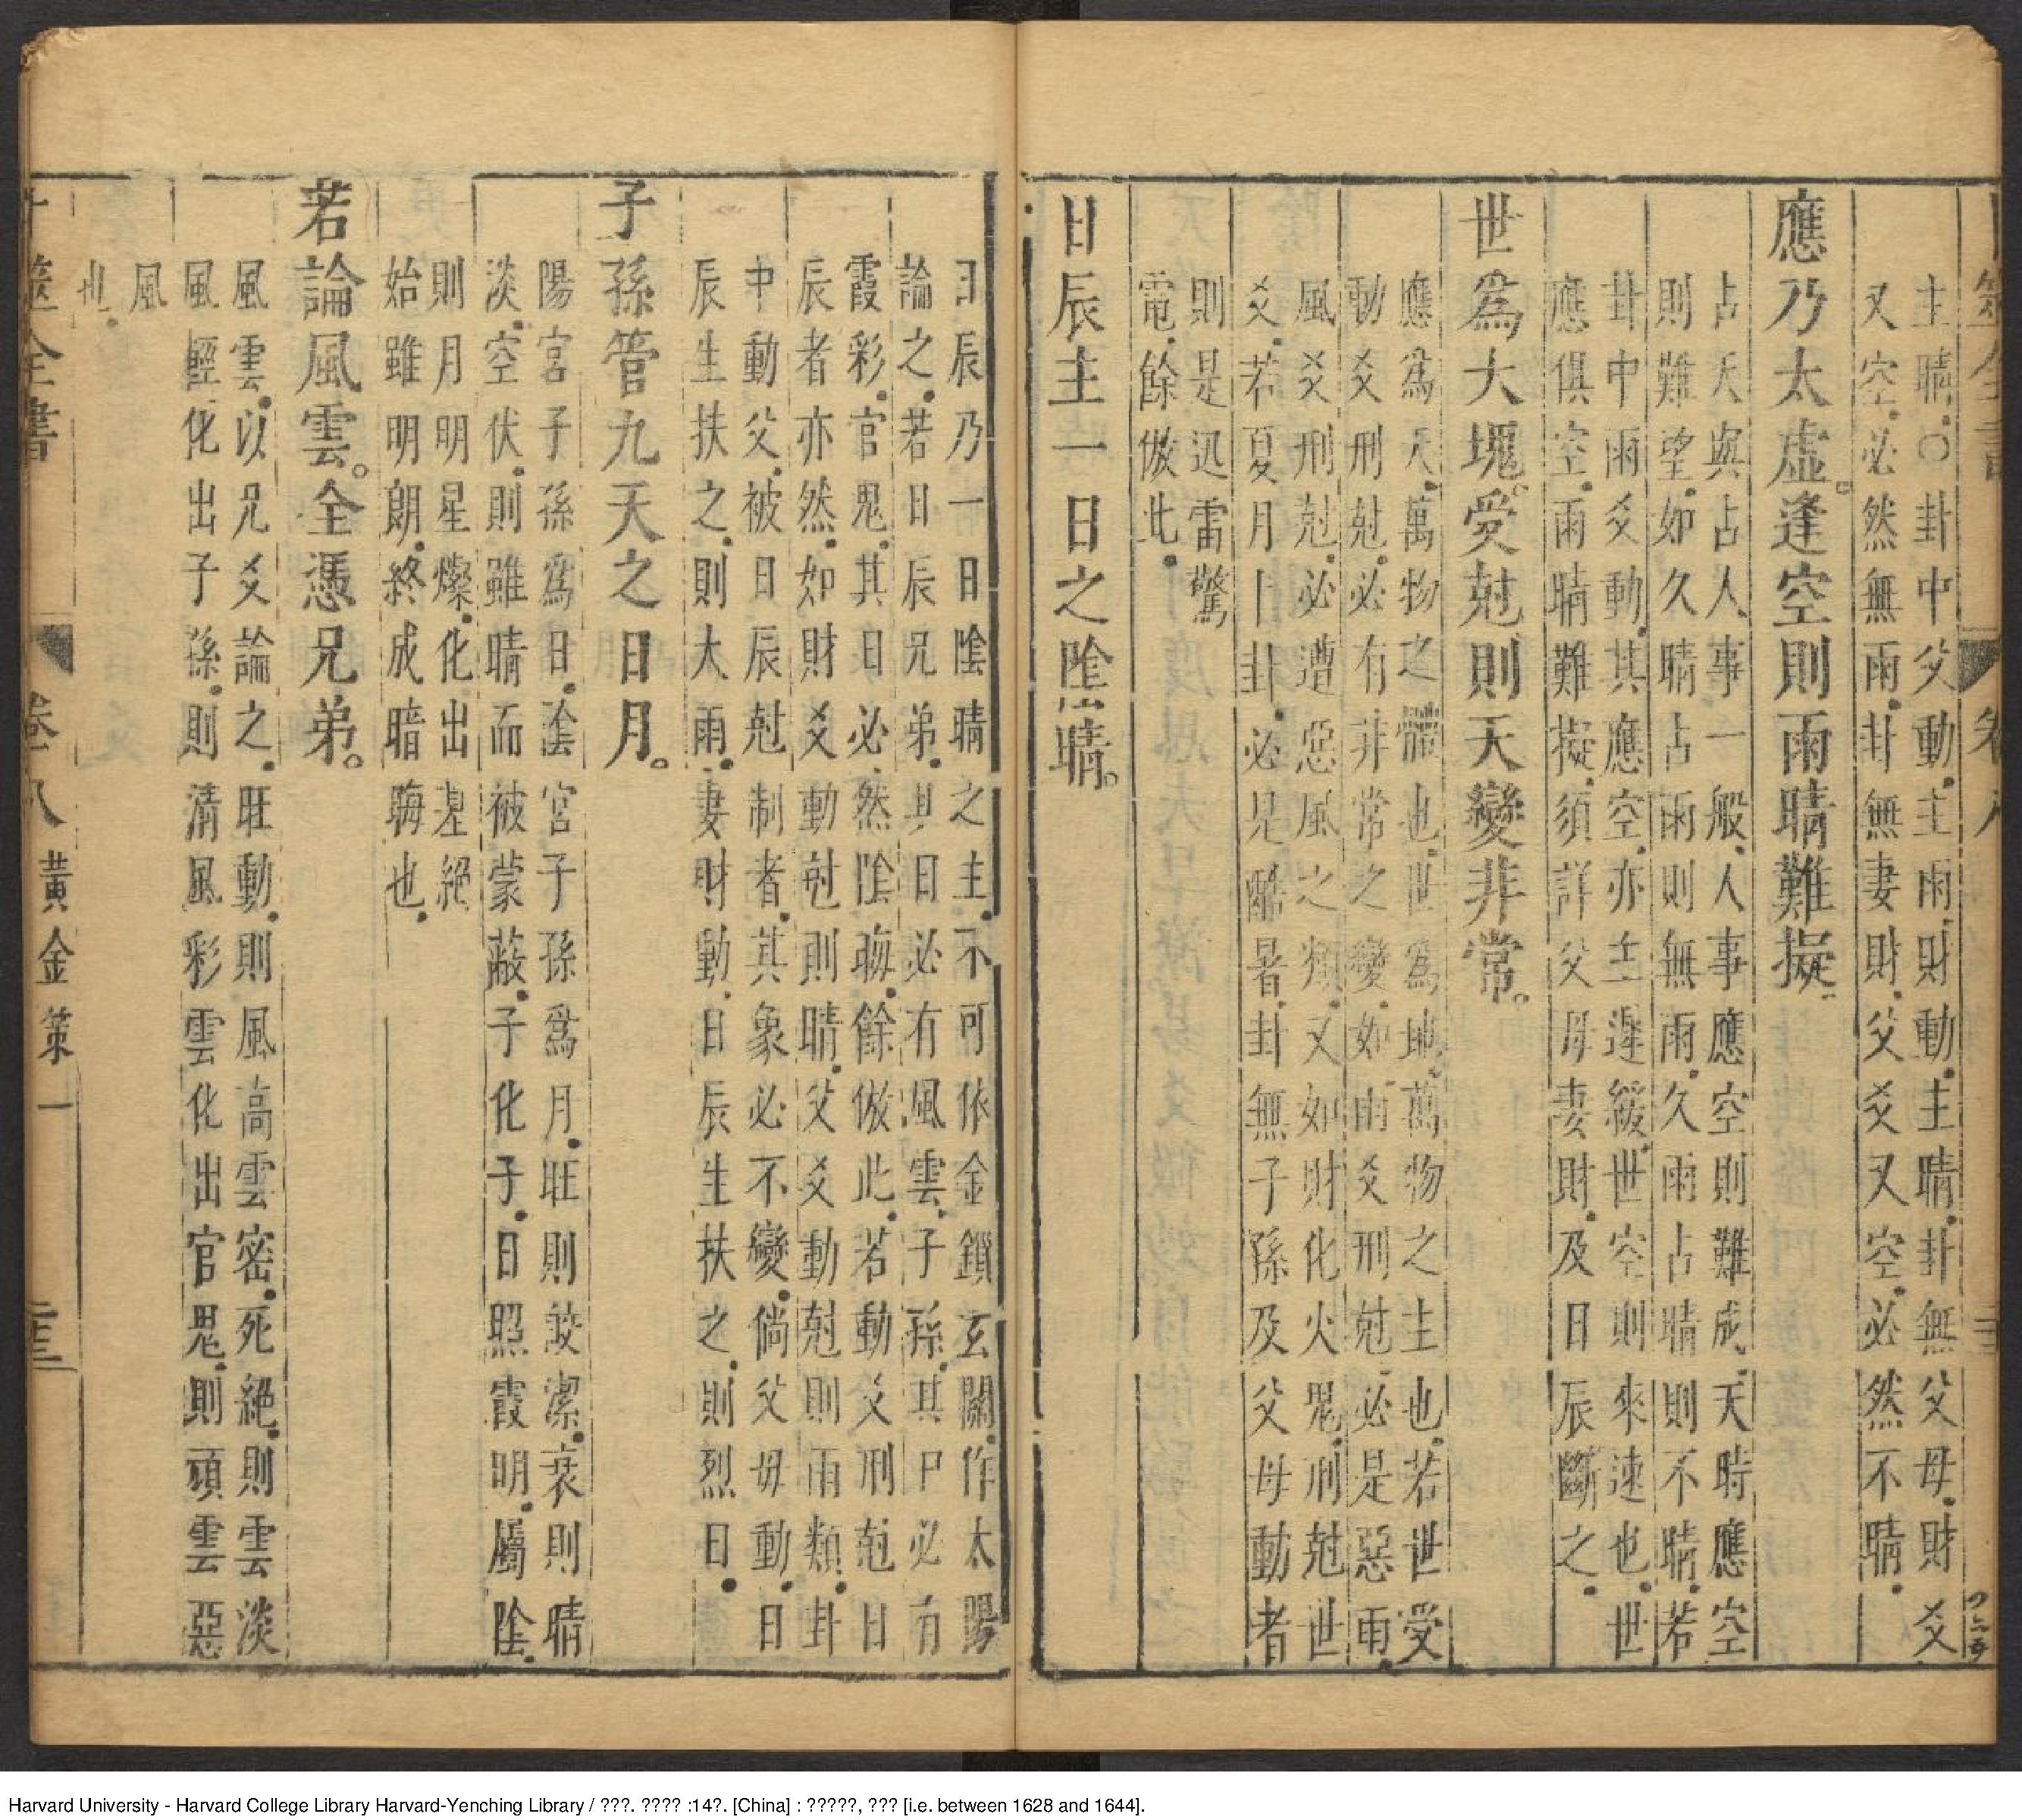 主晴○卦中父動主雨財動主晴卦無父母財爻
又空必然無雨卦無妻財父爻又空必然不晴
應乃太虛逢空則雨晴難擬
占天與占人事一般人事應空則難成天時應空
則難望如久晴占雨則無雨久雨占晴則不晴若
卦中雨爻動其應空亦主遲緩世空則來速也世
應俱空雨晴難擬須詳父母妻財及日辰斷之
世爲大塊受尅則天變非常
應爲天萬物之體也世爲地萬物之主也若世受
動爻刑尅必有非常之變如雨爻刑尅必是惡雨
風爻刑尅必遭惡風之類又如財化火鬼刑尅世
爻若夏月卜卦必是酷暑卦無子孫及父母動者
則是迅雷驚
電餘倣此
日辰主一日之陰晴
日辰乃一日陰晴之主不可依金鎖玄關作太陽
論之若日辰兄弟其日必有風雲子孫其日必有
霞彩官鬼其日必然陰晦餘倣此若動爻刑尅日
辰者亦然如財爻動尅則晴父爻動尅則雨類卦
中動父被日辰尅制者其象必不變倘父母動日
辰生扶之則大雨妻財動日辰生扶之則烈日
子孫管九天之日月
陽宮子孫爲日陰宮子孫爲月旺則皎潔衰則晴
淡空伏則雖晴而被蒙蔽子化子日照霞明屬陰
則月明星燦化出墓絕
始雖明朗終成暗晦也
若論風雲全憑兄弟
風雲以兄爻論之旺動則風高雲密死絕則雲淡
風輕化出子孫則清風彩雲化出官鬼則頑雲惡
風
也
卜筮全書
卷八
黃金策一